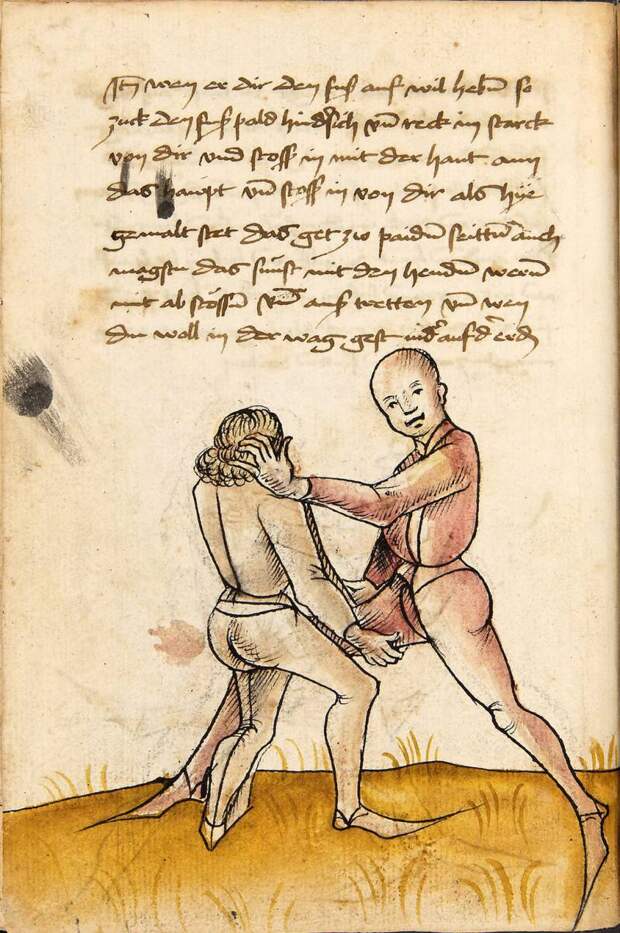 Itm wen er dir den fuß auf wil hebñ so
zuck den fuß pald hindersich vñ reck in starck
von dir vnd stoss in mit der hant ann
das haupt vñ stoss in von dir als hye
gemalt stet das get zw paidñ seittñ auch
magstu das sunst mit den hendñ werñ
mit ab stossñ vñ auß tretten vñ wen
du woll in der wag gest nider auf der erd